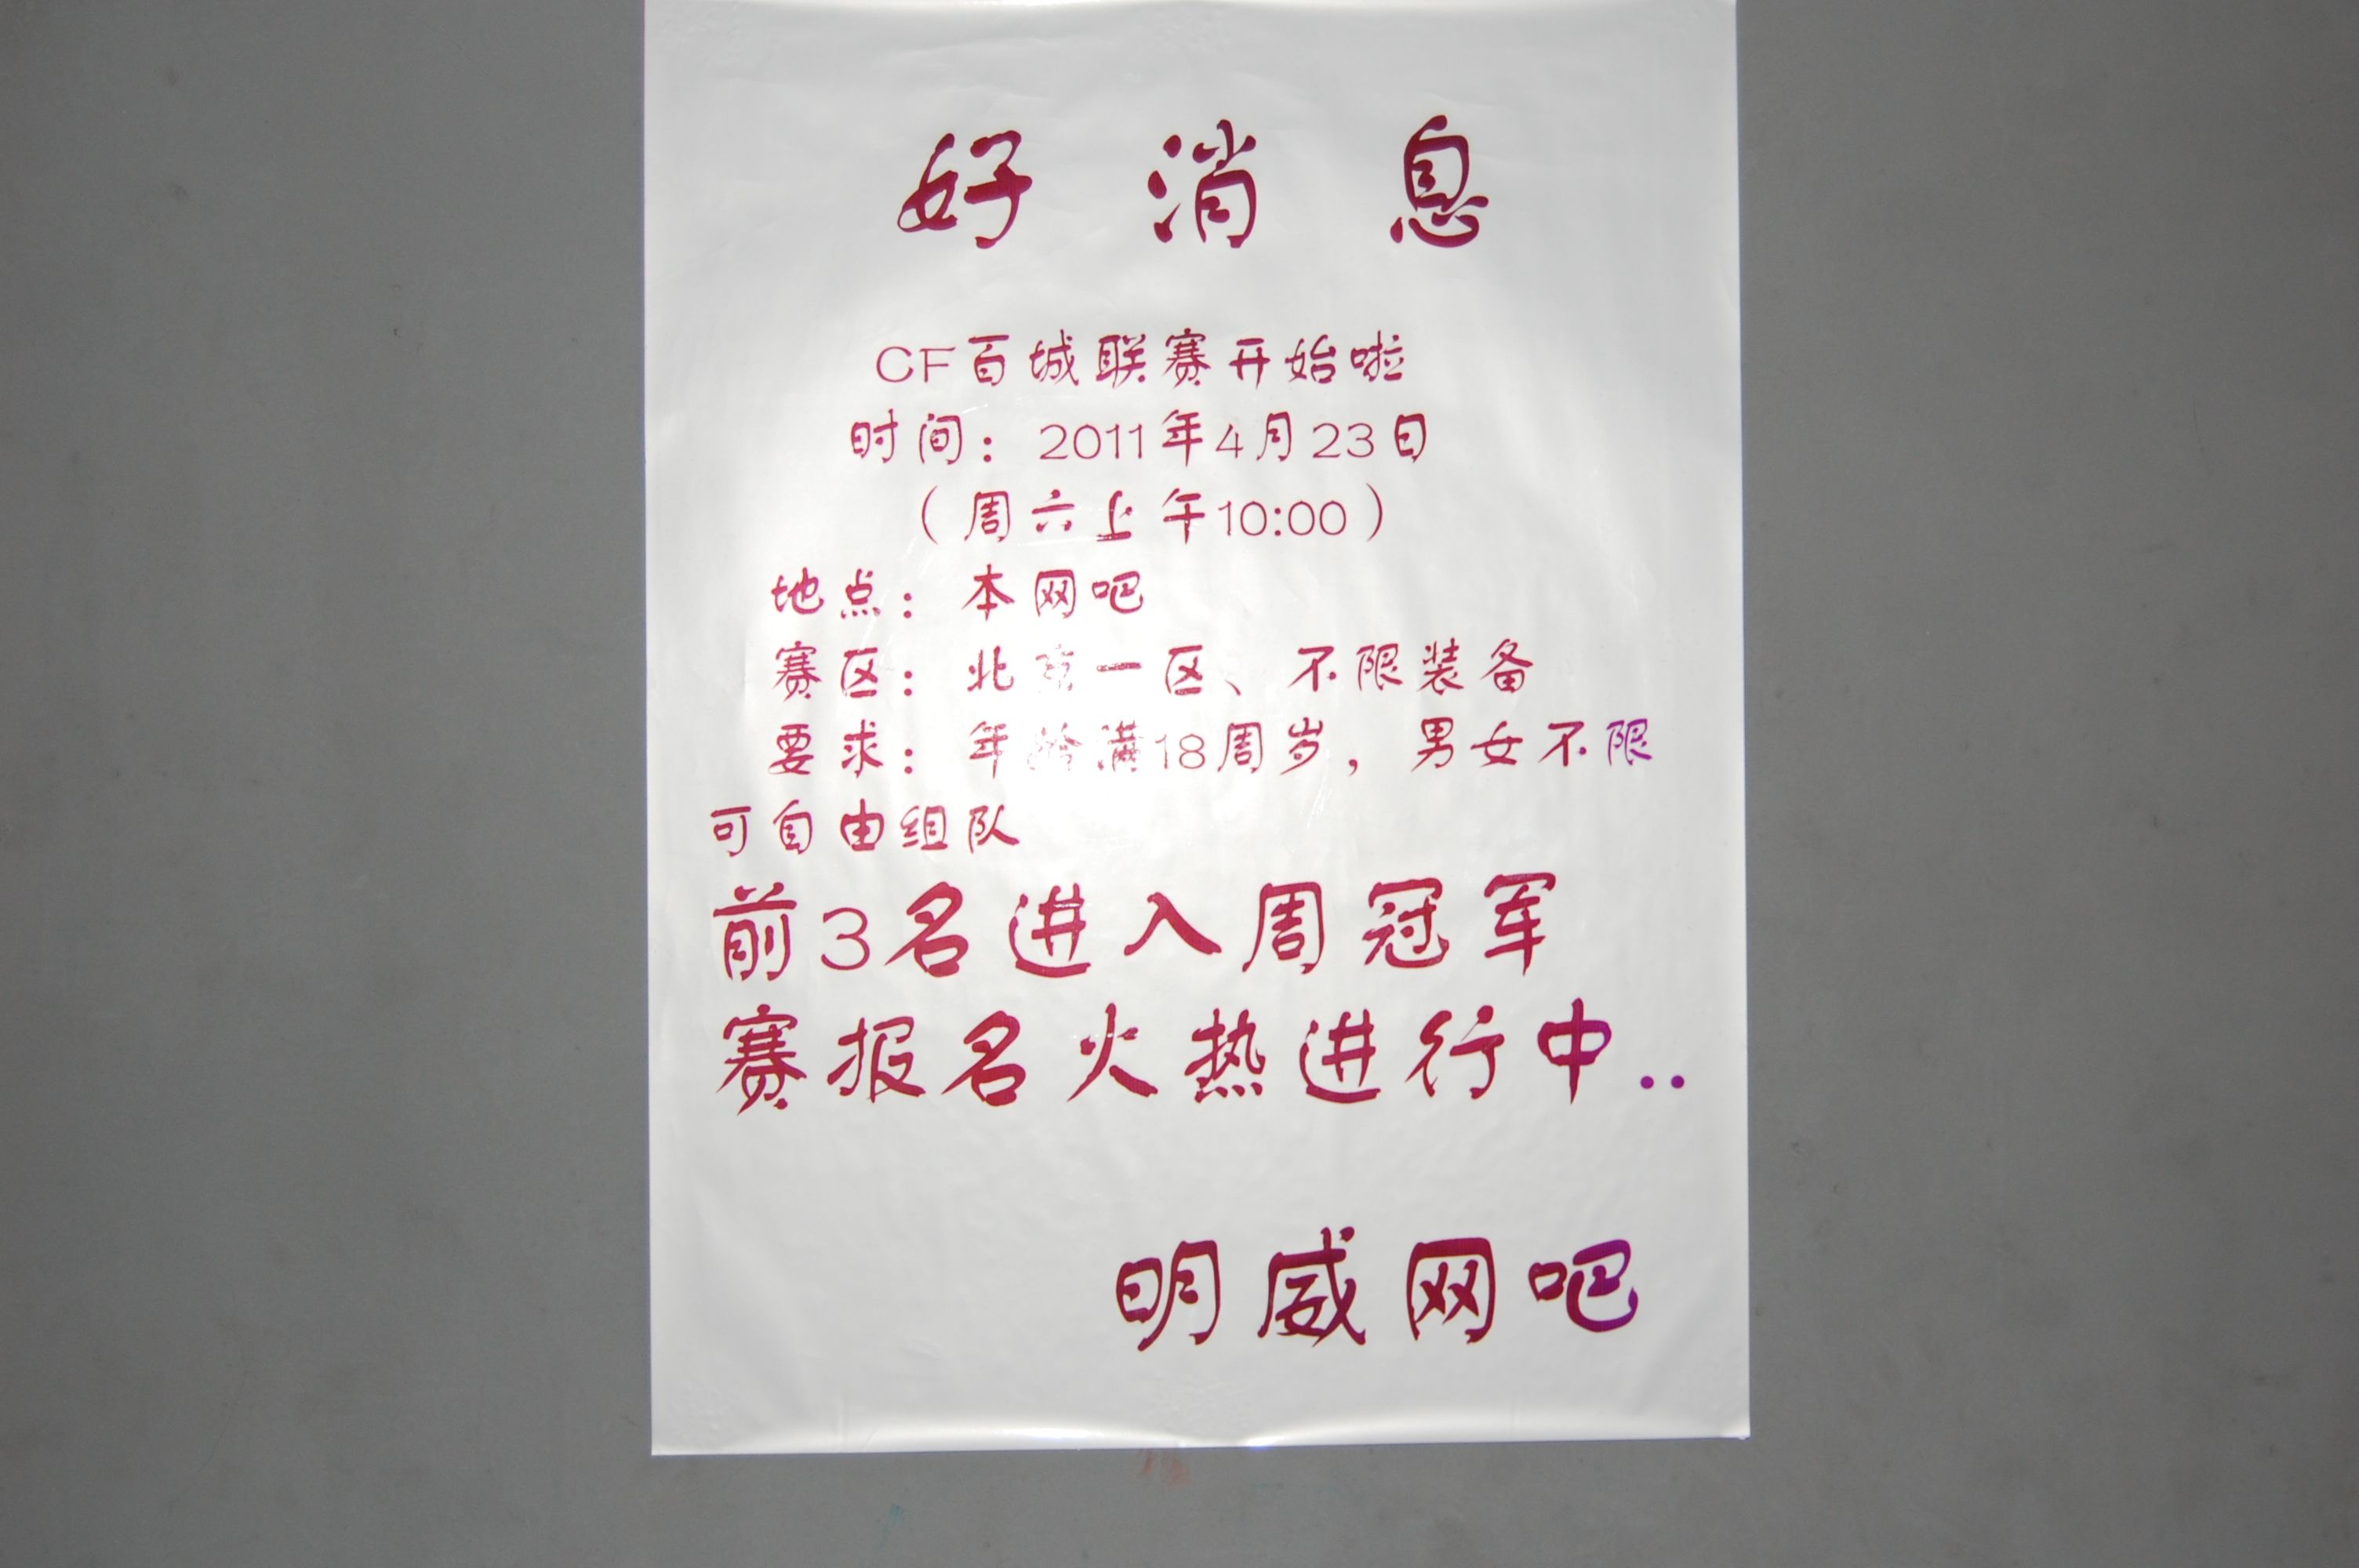 好消息
CF百城联赛开始啦
时间：2011年4月23日
（周六上午10:00）
地点：本网吧
赛区：北京一区、不限装备
要求：年龄满18周岁，男女不限
可自由组队
前3名进入周冠军
赛报名火热进行中..
明威网吧